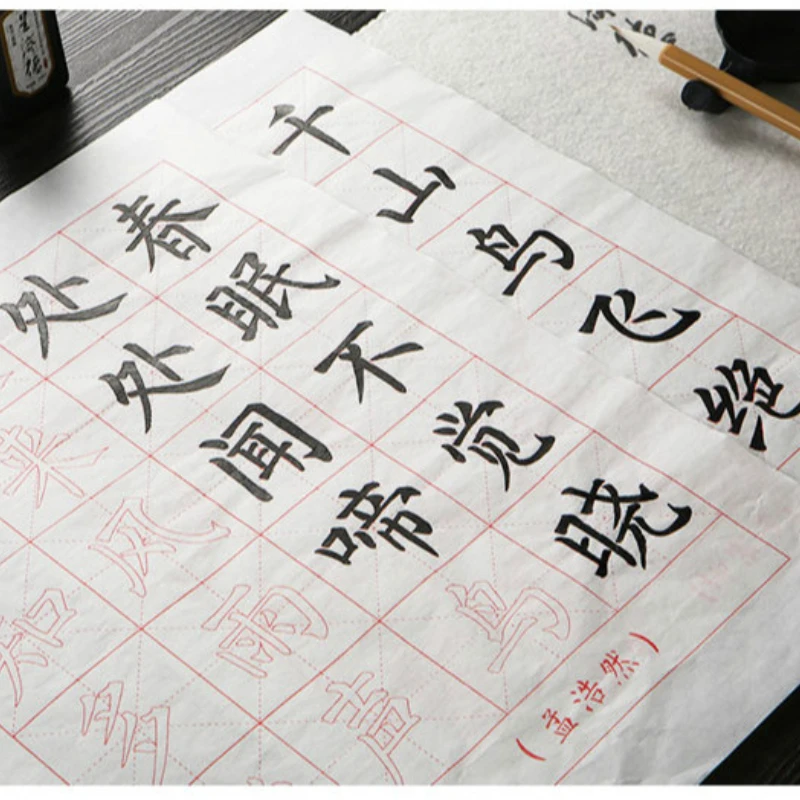 千山鸟飞绝
春眠不觉晓
处处闻啼鸟
来风雨声
知多
(孟浩然)